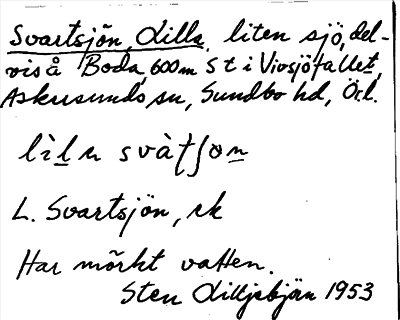 Svartsjön, Lilla, liten sjö, del-
vis å Boda, 600m S t i Vivsjöfallet,
Askersunds sn, Sundbo hd, Ör.l.
L. Svartsjön, rk
Har mörkt vatten.
Sten Lilljebjörn 1953